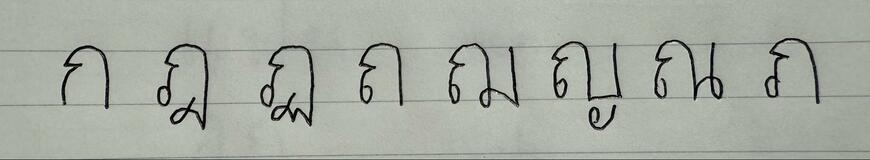 ก ฎ ฏ ถ ฌ ญ ณ ภ